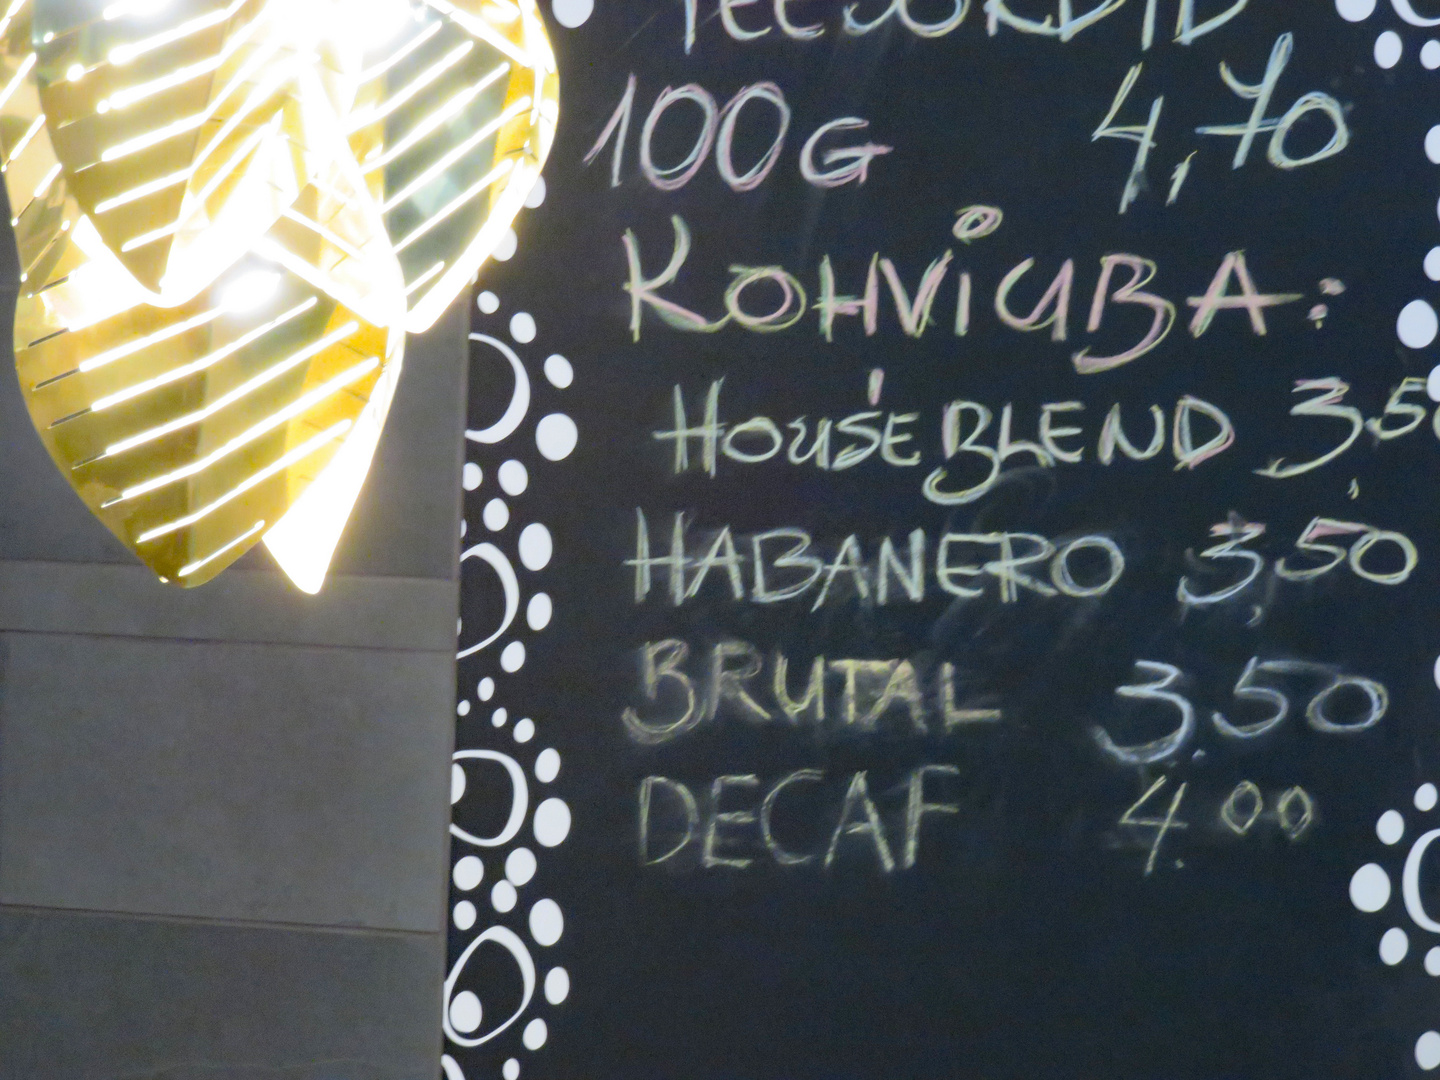 TEESORDID
100G 4,70
KOHVIUBA:
HOUSEBLEND 3,50
HABANERO 3,50
BRUTAL 3.50
DECAF 4.00